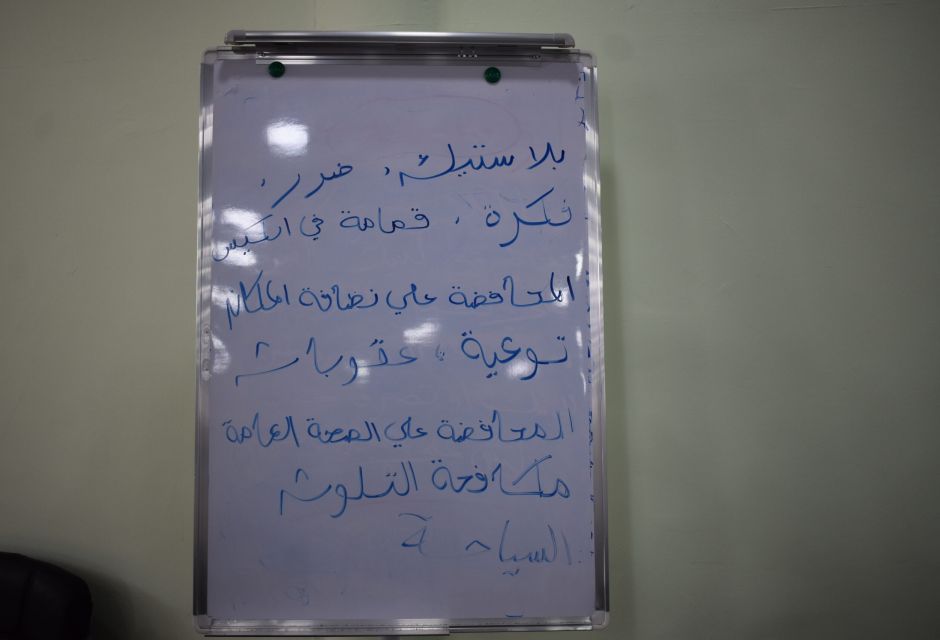 بلاستيك، ضرر،
فكرة، قمامة في الكيس
المحافضة علي نضافة المكان
توعية، عقوبات
المحافضة علي الصحة العامة
مكافحة التلوث
السياحة